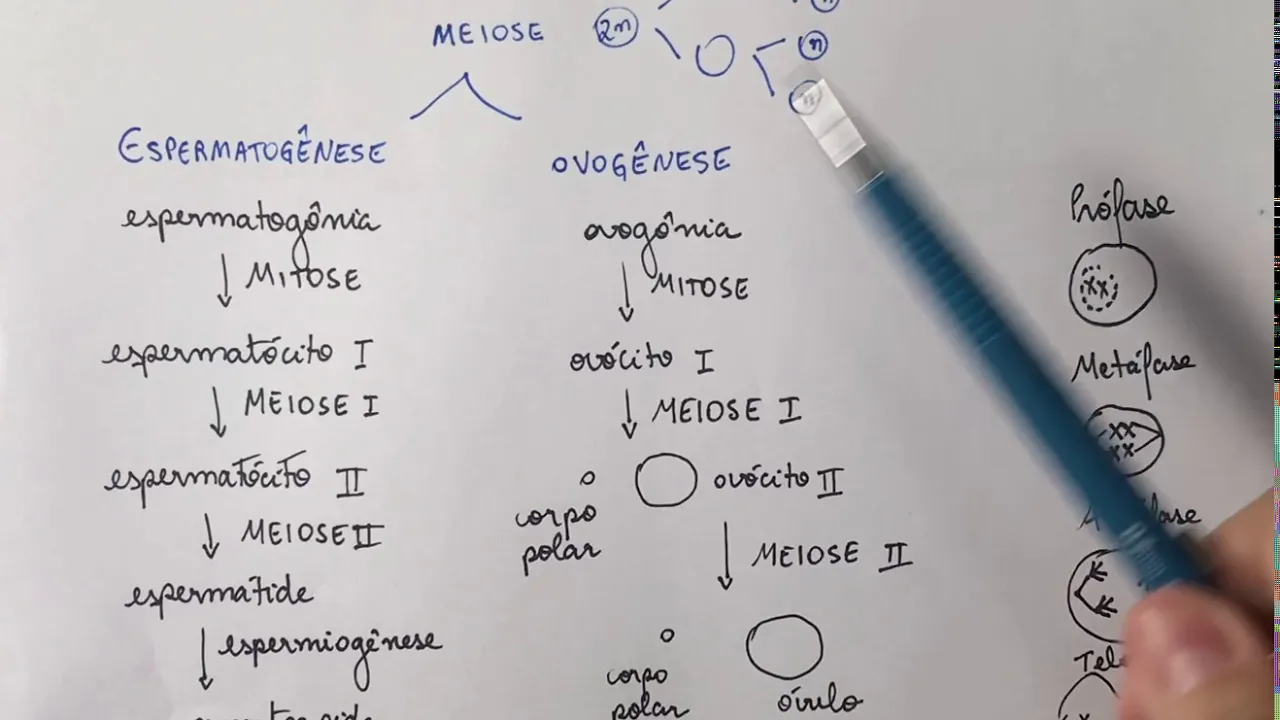 MEIOSE
2n
n
ESPERMATOGÊNESE
espermatogônia
MITOSE
espermatócito I
MEIOSE I
espermatócito II
MEIOSE II
espermatide
espermiogênese
OVOGÊNESE
ovogônia
MITOSE
ovócito I
MEIOSE I
ovócito II
corpo
polar
MEIOSE II
corpo
polar
óvulo
Prófase
Metáfase